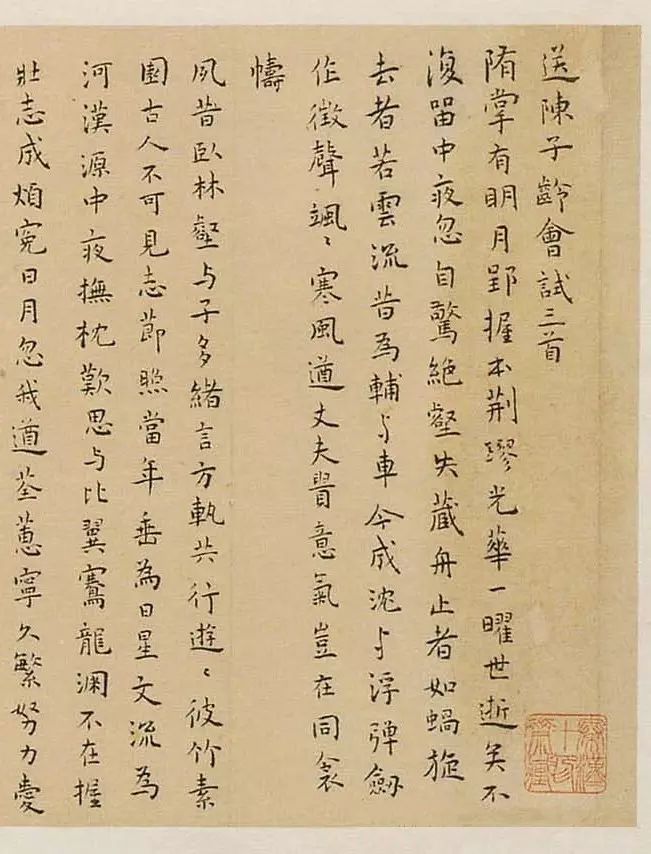 送陳子齡會試三首
隋掌有明月郢握本荆璆光華一曜世逝矣不
復留中夜忽自驚絶壑失藏舟止者如蝸旋
去者若雲流昔為輔与車今成沈与浮彈劔
作徵聲颯〻寒風遒丈夫貴意氣豈在同衾
幬
夙昔臥林壑与子多緒言方軌共行遊〻彼竹素
園古人不可見志節照當年垂為日星文流為
河漢源中夜撫枕歎思与比翼騫龍渊不在握
壯志成煩寃日月忽我遒荃蕙寧久繁努力愛